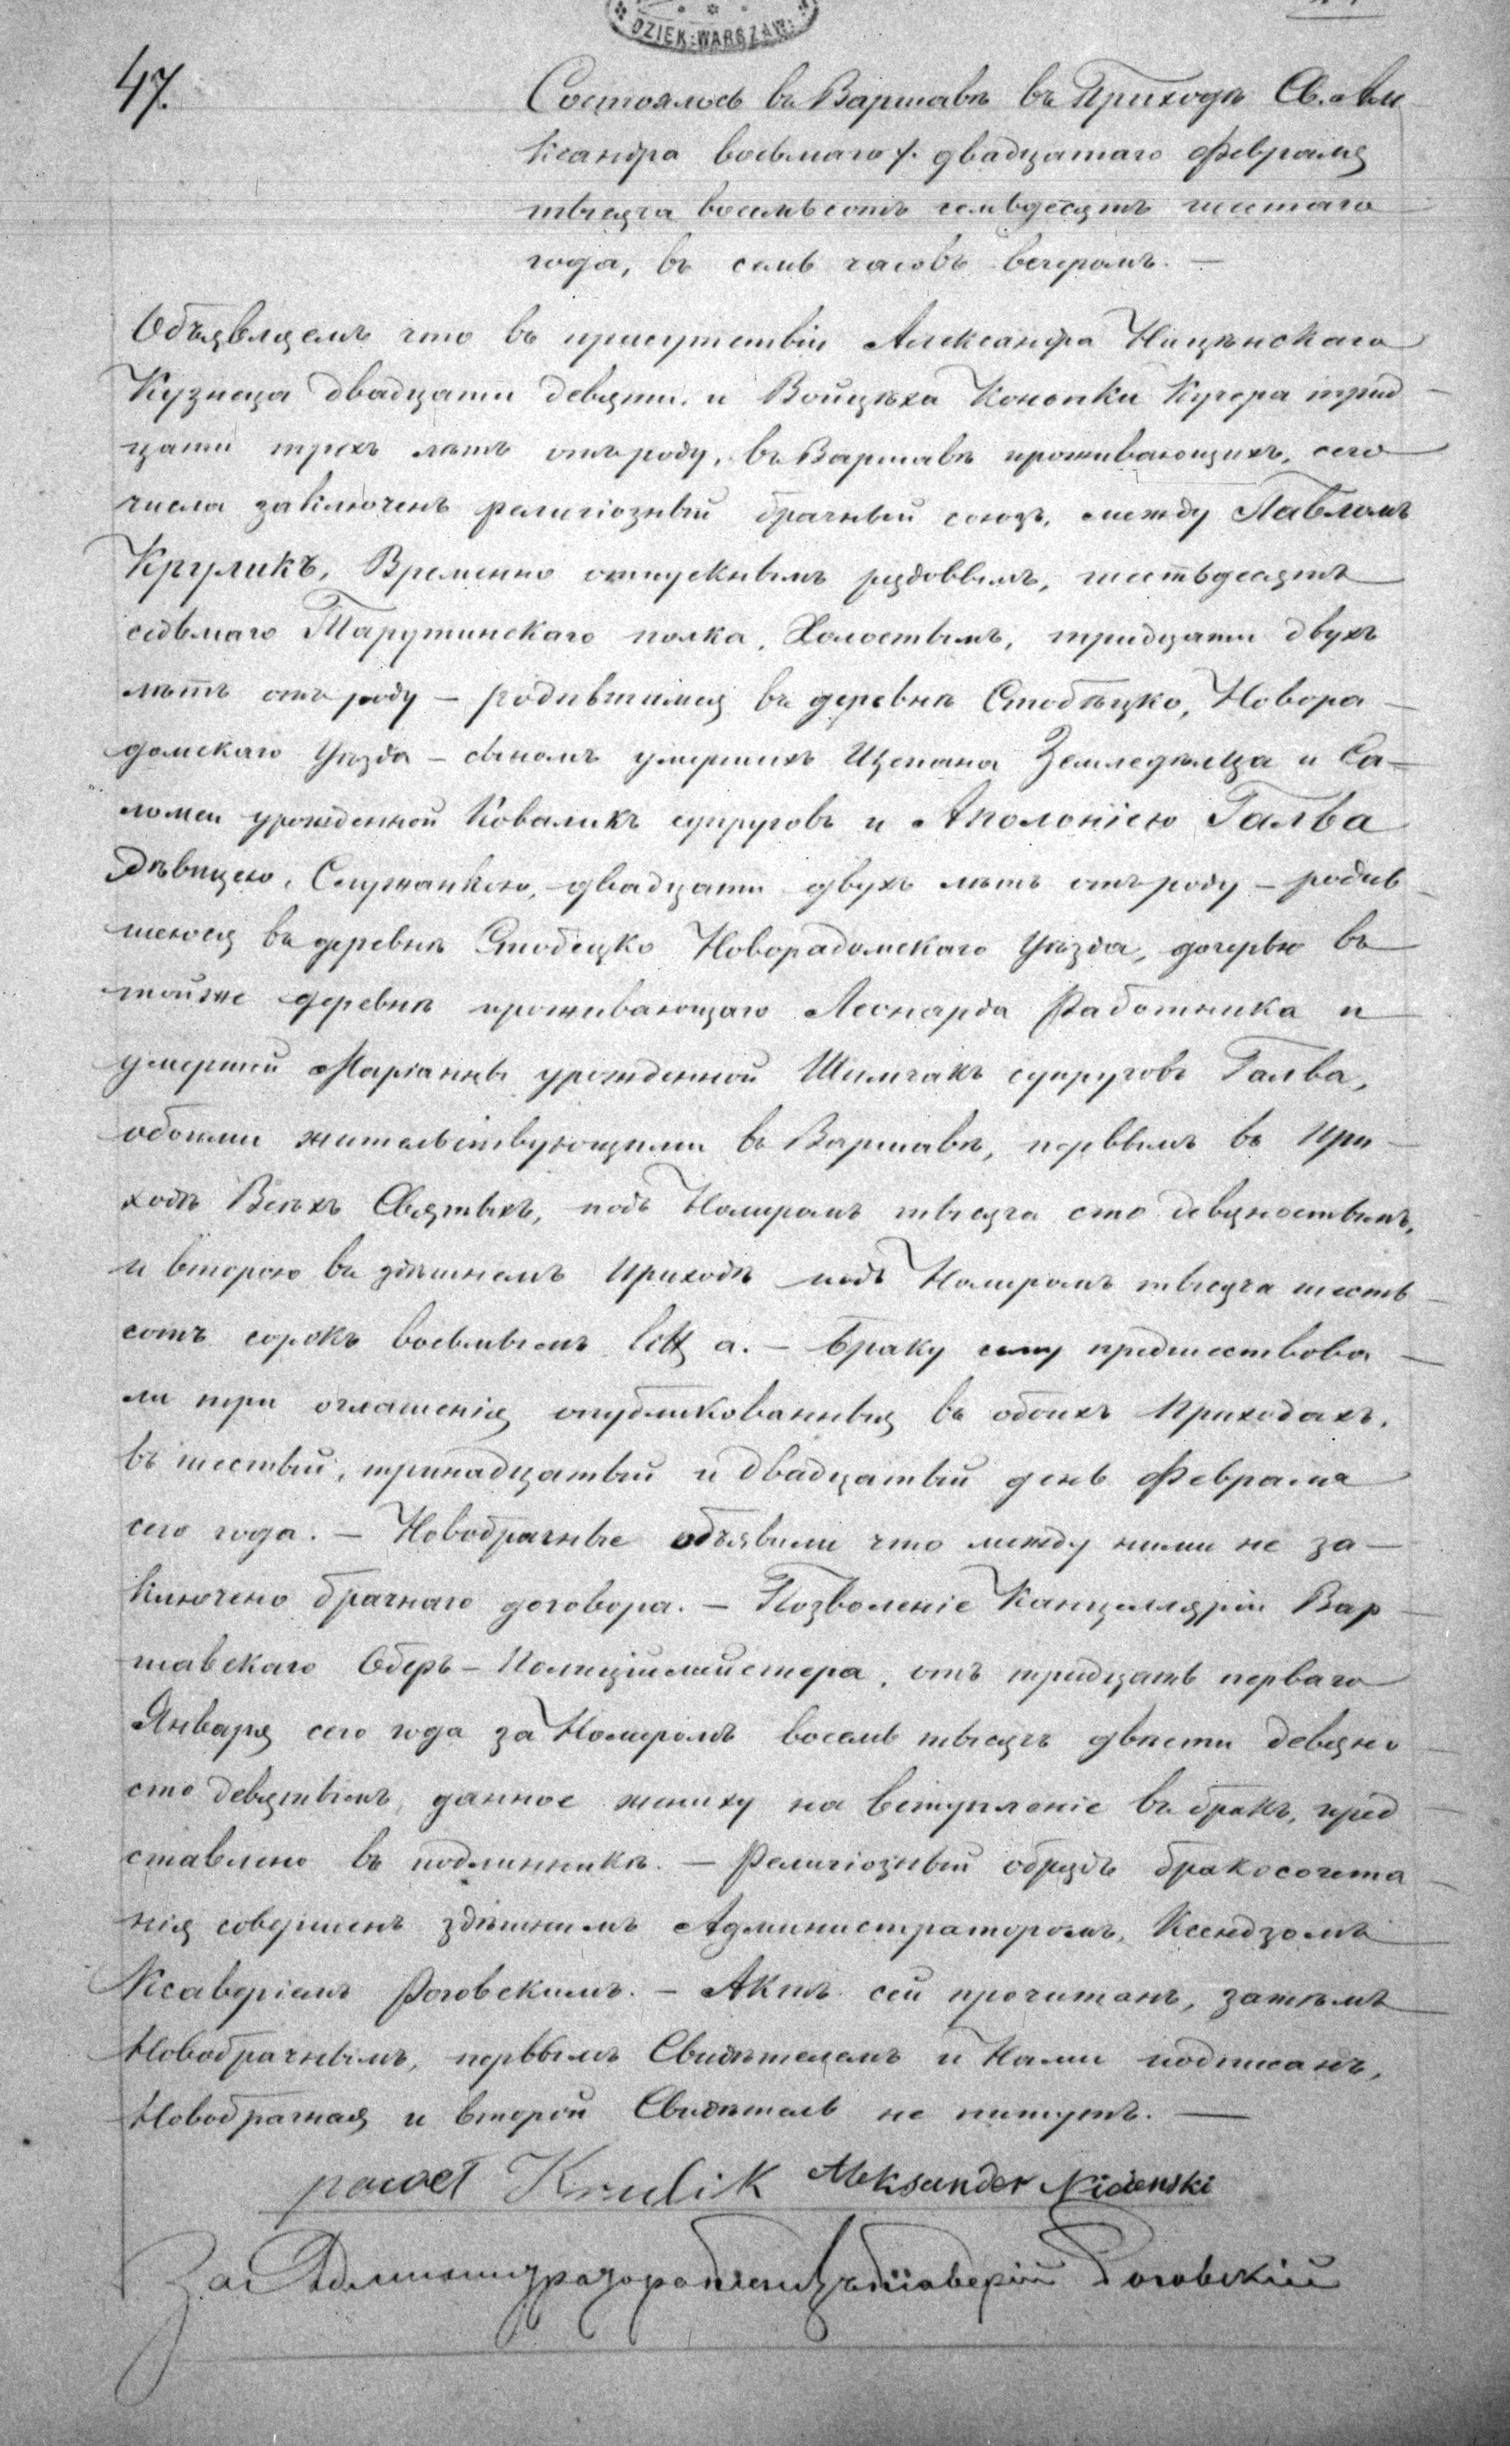 DZIEK: WARSZAW:
47.
Состоялось въ Варшавѣ въ Приходѣ Св. Але
ксандра восьмаго /. двадцатаго Февраля
тысяча восемьсотъ семьдесятъ шестаго
года, въ семь часовъ вечеромъ. —
Объявляемъ что въ присутствіи Александра Ницѣнскаго
Кузнеца двадцати девяти, и Войцѣха Конопки Кучера трид-
цати трехъ лѣтъ отъ роду, въ Варшавѣ проживающихъ, сего
числа заключенъ религіозный брачный союзъ, между Павломъ
Круликъ, Временно отпускнымъ рядовымъ, шестьдесятъ
седьмаго Тарутинскаго полка, Холостымъ, тридцати двухъ
лѣтъ отъ роду — родившимся въ деревнѣ Стобѣцко, Новора-
домскаго Уѣзда — сыномъ умершихъ Щепана Земледѣльца и Са-
ломеи урожденной Коваликъ супруговъ и Аполоніею Галва
Дѣвицею, Служанкою, двадцати двухъ лѣтъ отъ роду — родив-
шеюся въ деревнѣ Стобецко Новорадомскаго Уѣзда, дочерью въ
тойже деревнѣ проживающаго Леонарда Работника и
умершей Маріанны урожденной Шимчакъ супруговъ Галва,
обоими жительствующими въ Варшавѣ, первымъ въ При-
ходѣ Всѣхъ Святыхъ, подъ Номеромъ тысяча сто девяностымъ,
и второю въ здѣшнемъ Приходѣ подъ Номеромъ тысяча шесть-
сотъ сорокъ восьмымъ litt a. — Браку сему предшествова-
ли три оглашенія опубликованныя въ обоихъ Приходахъ,
въ шестый, тринадцатый и двадцатый день Февраля
сего года. — Новобрачные объявили что между ними не за-
ключено брачнаго договора. — Позволеніе Канцелляріи Вар-
шавскаго Оберъ-Полиціймейстера, отъ тридцать перваго
Января сего года за Номеромъ восемь тысячъ двѣсти девяно-
сто девятымъ, данное жениху на вступленіе въ бракъ, пред-
ставлено въ подлинникѣ. — Религіозный обрядъ бракосочета-
нія совершенъ здѣшнимъ Администраторомъ, Ксендзомъ
Ксаверіемъ Роговскимъ. — Актъ сей прочитанъ, затѣмъ
Новобрачнымъ, первымъ Свидѣтелемъ и Нами подписанъ,
Новобрачная и второй Свидѣтель не пишутъ. —
paweł Krulik Aleksander Nicienski
За Администратора Ксаверій Роговскій